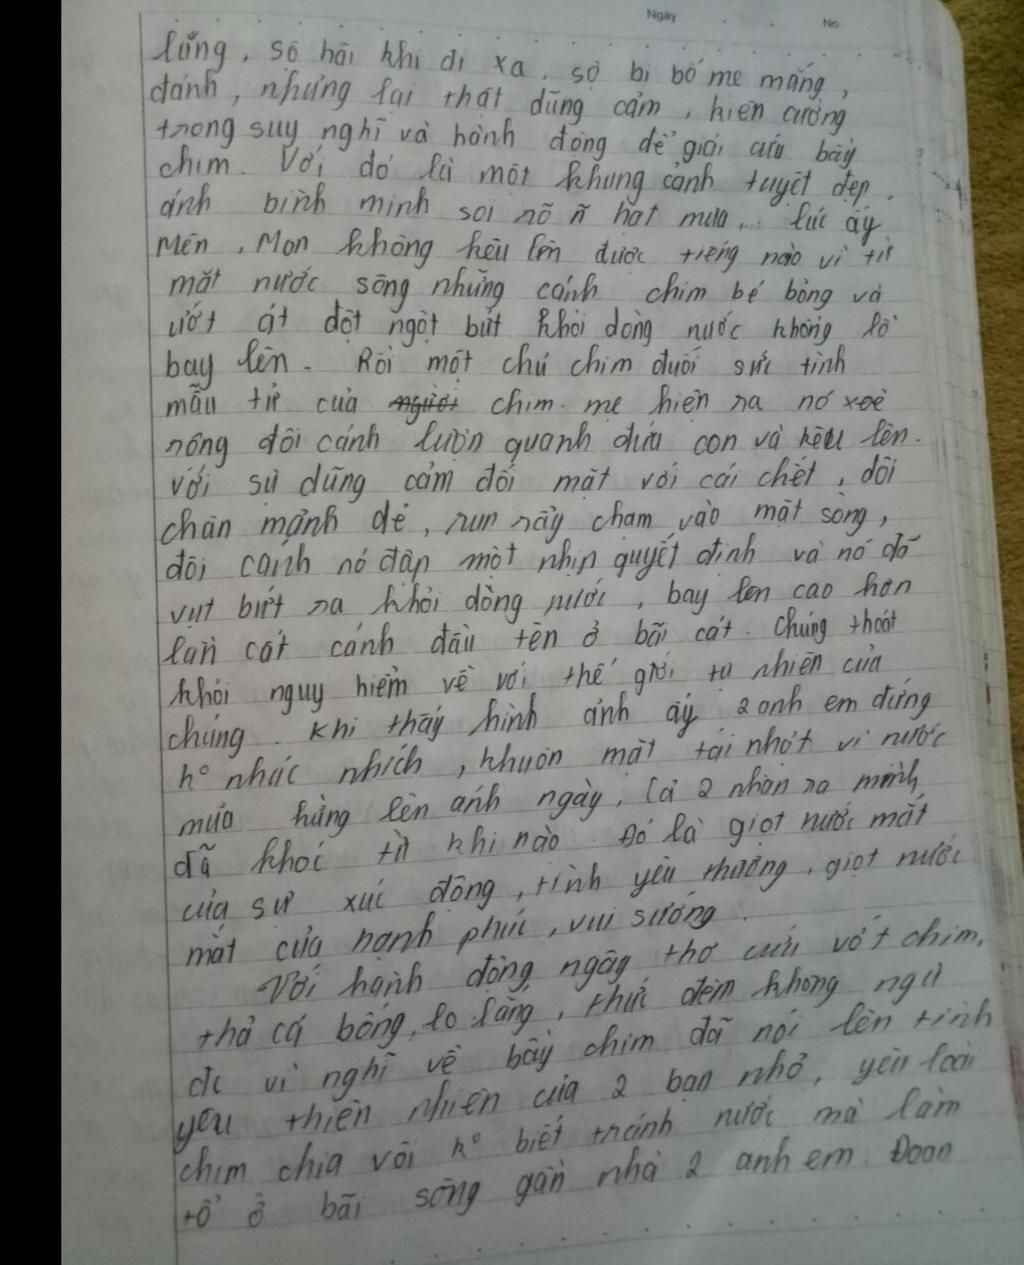 Ngày No.
lắng, sợ hãi khi đi xa, sợ bị bố mẹ mắng,
đánh, nhưng lại thật dũng cảm, kiên cường
trong suy nghĩ và hành động để giải cứu bầy
chim. Với đó là một khung cảnh tuyệt đẹp.
ánh bình minh soi rõ ñ hạt mưa,... lúc ấy
Mên, Mon không kêu lên được tiếng nào vì từ
mặt nước sông những cánh chim bé bỏng và
ướt át đột ngột bứt khỏi dòng nước khổng lồ
bay lên. Rồi một chú chim đuối sức tình
mẫu tử của người chim mẹ hiện ra nó xoè
rộng đôi cánh lượn quanh đứa con và kêu lên.
với sự dũng cảm đối mặt với cái chết, đôi
chân mảnh dẻ, run rẩy chạm vào mặt sông,
đôi cánh nó đập một nhịp quyết định và nó đã
vụt bứt ra khỏi dòng nước, bay lên cao hơn
lần cất cánh đầu tên ở bãi cát. Chúng thoát
khỏi nguy hiểm về với thế giới tự nhiên của
chúng. Khi thấy hình ảnh ấy 2 anh em đứng
kº nhúc nhích, khuôn mặt tái nhợt vì nước
mưa hửng lên ánh ngày. Cả 2 nhận ra mình
đã khóc từ khi nào. Đó là giọt nước mắt
của sự xúc động, tình yêu thương, giọt nước
mắt của hạnh phúc, vui sướng.
Với hành động ngây thơ cứu vớt chim,
thả cá bống, lo lắng, thức đêm không ngủ
đc vì nghĩ về bầy chim đã nói lên tình
yêu thiên nhiên của 2 bạn nhỏ, yêu loài
chim chìa vôi kº biết tránh nước mà làm
tổ ở bãi sông gần nhà 2 anh em. Đoạn